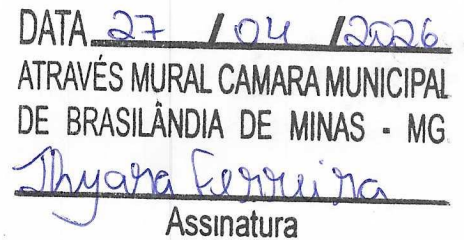 DATA 27 / 04 / 2026
ATRAVÉS MURAL CAMARA MUNICIPAL
DE BRASILÂNDIA DE MINAS - MG
Thyara Ferreira
Assinatura